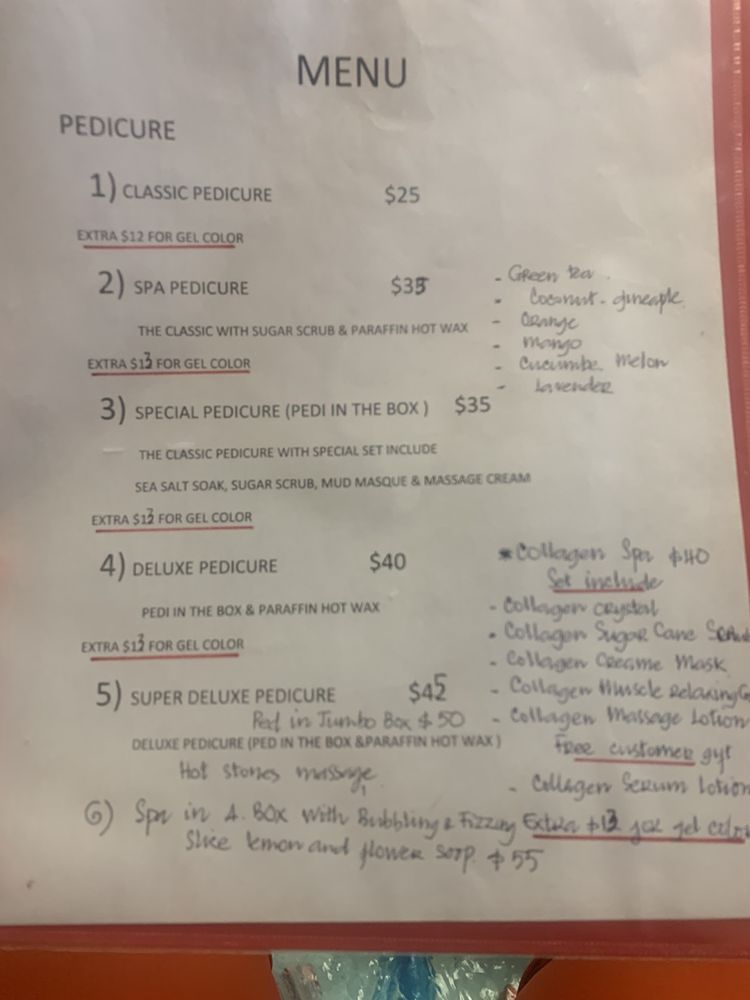 MENU
PEDICURE
1) CLASSIC PEDICURE $25
EXTRA $12 FOR GEL COLOR
2) SPA PEDICURE $35
THE CLASSIC WITH SUGAR SCRUB & PARAFFIN HOT WAX
EXTRA $13 FOR GEL COLOR
- Green tea
- Coconut - pineaple
- Orange
- mango
- Cucumbe melon
- lavender
3) SPECIAL PEDICURE (PEDI IN THE BOX ) $35
THE CLASSIC PEDICURE WITH SPECIAL SET INCLUDE
SEA SALT SOAK, SUGAR SCRUB, MUD MASQUE & MASSAGE CREAM
EXTRA $13 FOR GEL COLOR
4) DELUXE PEDICURE $40
PEDI IN THE BOX & PARAFFIN HOT WAX
EXTRA $13 FOR GEL COLOR
* Collagen Spa $40
Set include
- Collagen crystal
- Collagen Sugar Cane
- Collagen Creame Mask
- Collagen Muscle Relaxing
- Collagen Massage Lotion
Free customer
- Collagen Serum Lotion
5) SUPER DELUXE PEDICURE $45
Ped in Jumbo Box $50
DELUXE PEDICURE (PED IN THE BOX &PARAFFIN HOT WAX )
Hot stones massage
6) Spa in A. Box with Bubbling & Fizzing Extra $13 for gel color
Slice lemon and flower soap. $55